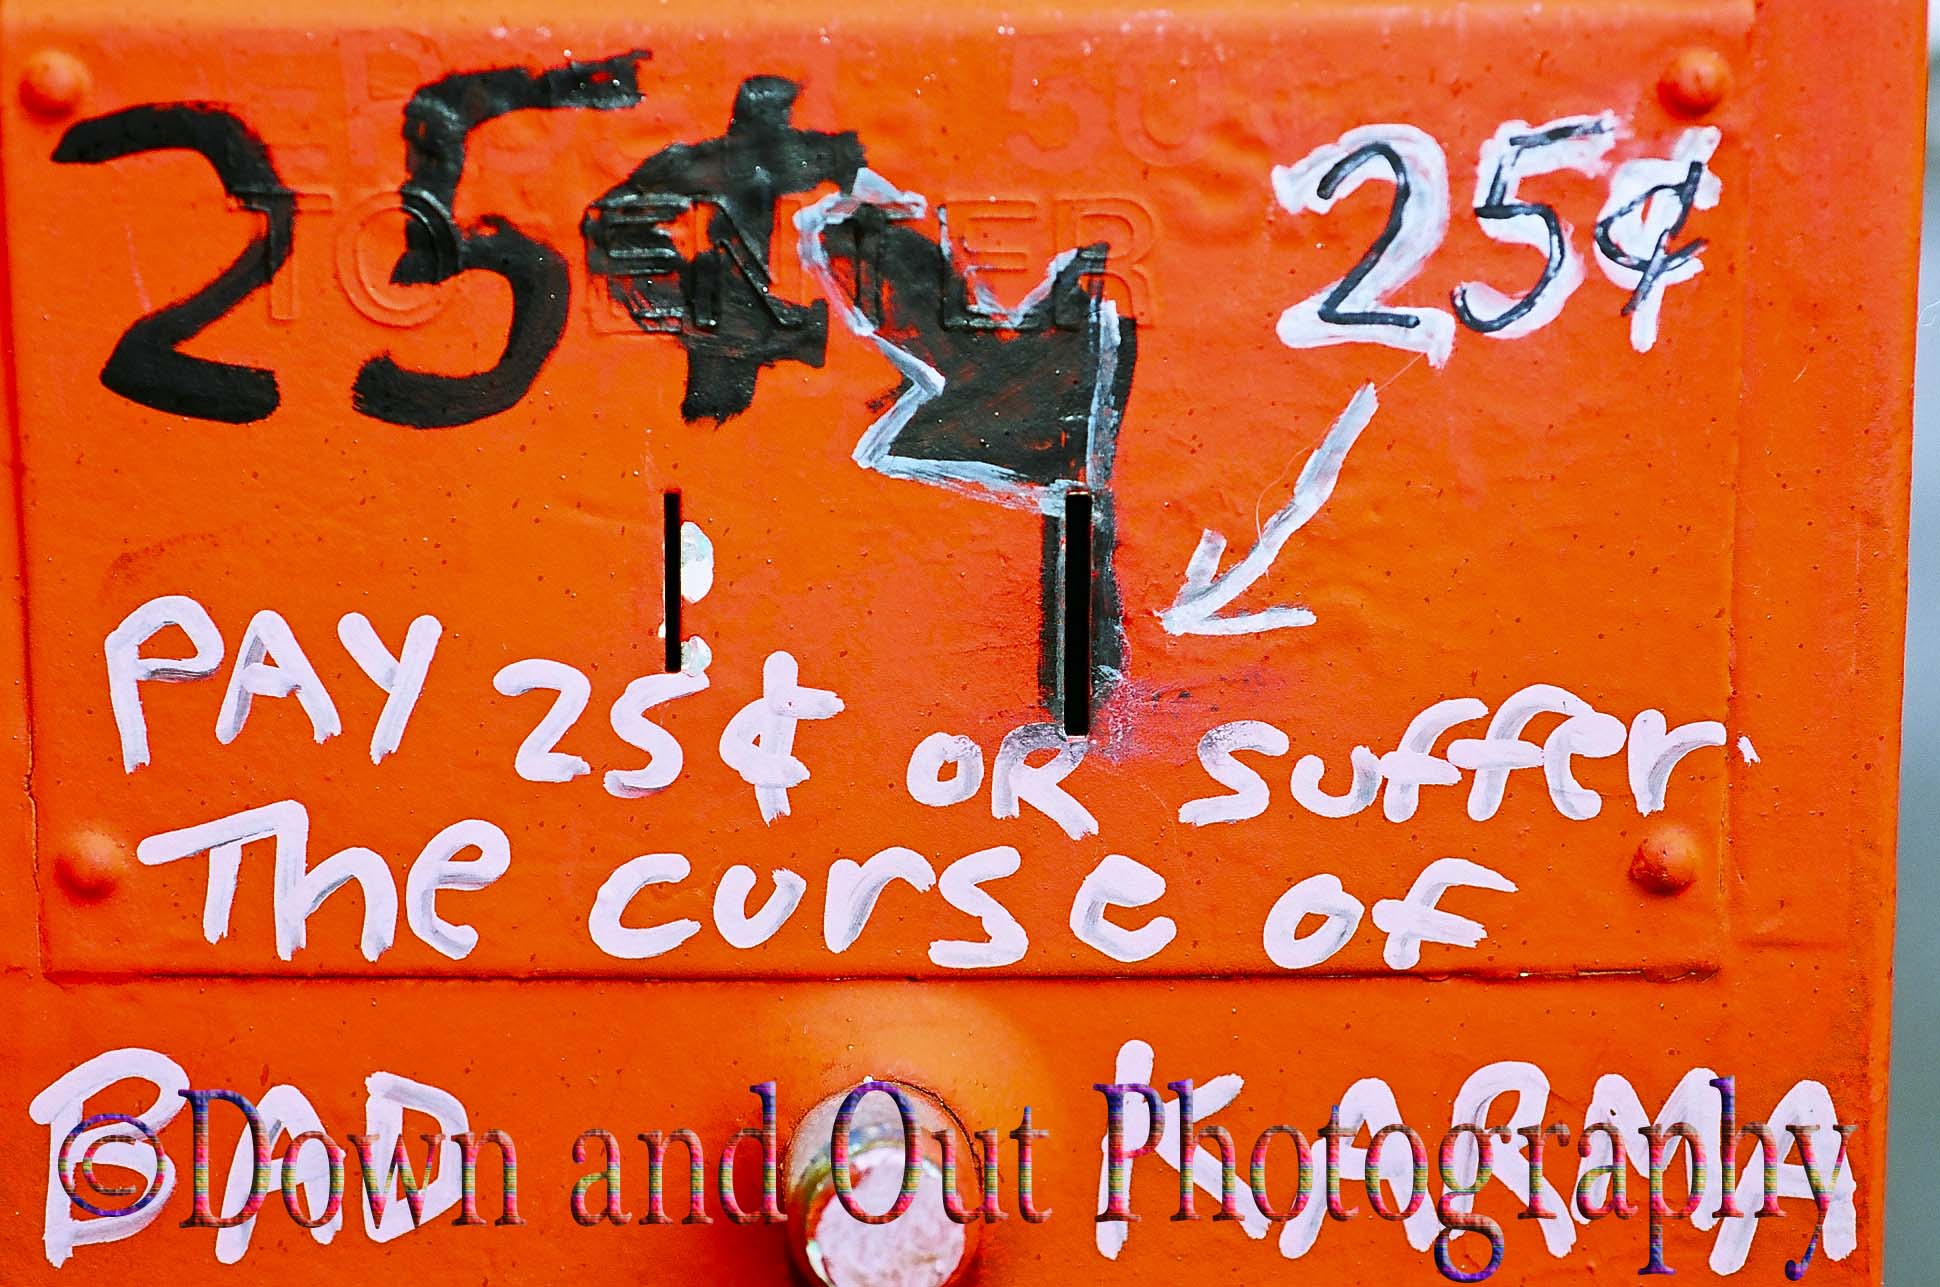 25¢
25¢
50
TO ENTER
PAY 25¢ OR suffer
The curse of
BAD KARMA
©Down and Out Photography